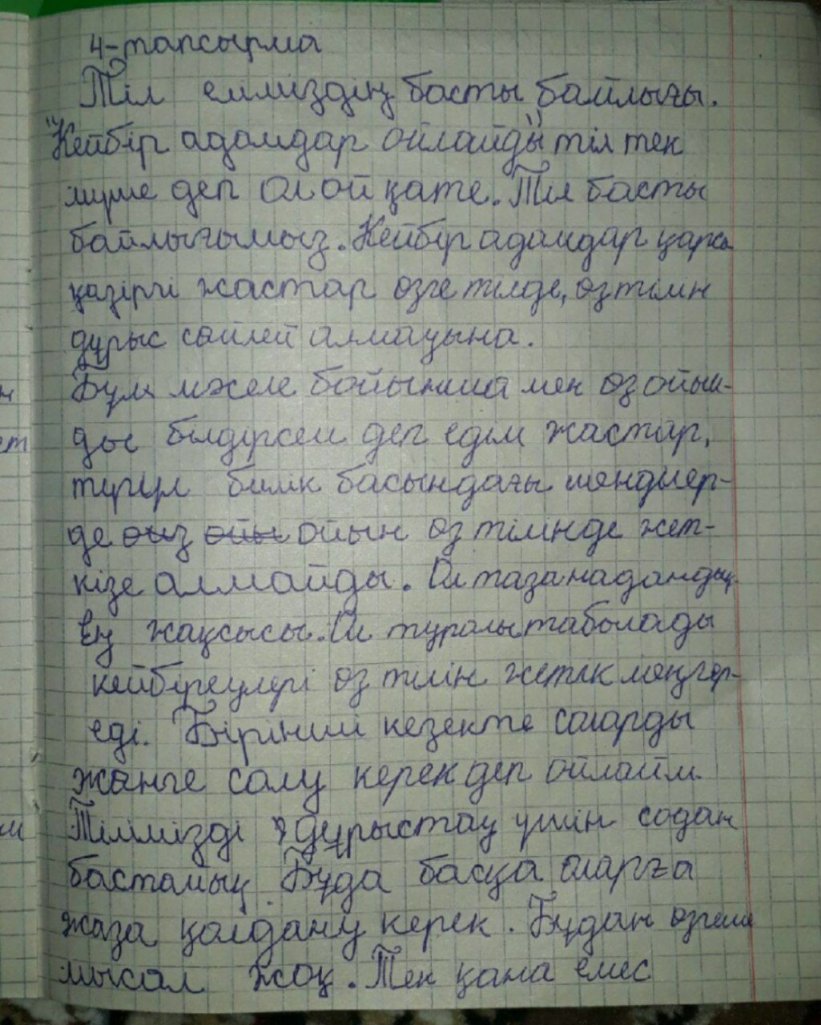 4-тапсырма
Тіл еліміздің басты байлығы.
"Кейбір адамдар ойлайды" тіл тек
мүше деп ол ой қате. Тіл басты
байлығымыз. Кейбір адамдар қарсы
қазіргі жастар өзге тілде, өз тілін
дұрыс сөйлей алмауына.
Бұл мәселе бойынша мен өз ойым-
ды білдірсем деп едім жастар,
түгіл билік басындағы шенділер-
де ойын өз тілінде жет-
кізе алмайды. Ол таза надандық
Ең жақсысы. Ол туралы табылады
кейбіреулері өз тілін жетік меңгер-
еді. Бірінші кезекте соларды
жөнге салу керек деп ойлайм
Тілімізді дұрыстау үшін содан
бастамық. Бұда басқа оларға
жаза қолдану керек. Бұдан өзгеше
мысал жоқ. Тек қана емес